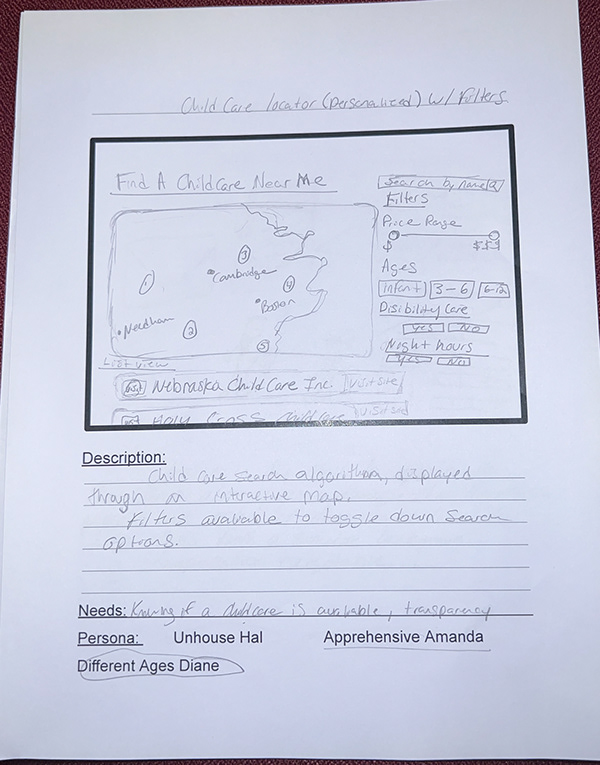 Child Care locator (personalized) w/ Filters
Find A ChildCare Near Me
Search by name
Filters
Price Range
$ $$$
Ages
infant 3-6 6-12
Disibility Care
Yes No
Night hours
Yes No
1
3
Cambridge
4
Boston
Needham
2
5
List view
Nebraska ChildCare Inc. Visit site
Holy Cross childcare
Description:
Child care search algorithm, displayed
through an interactive map.
Filters available to toggle down search
options.
Needs: Knowing if a childcare is available, transparency
Persona: Unhouse Hal Apprehensive Amanda
Different Ages Diane